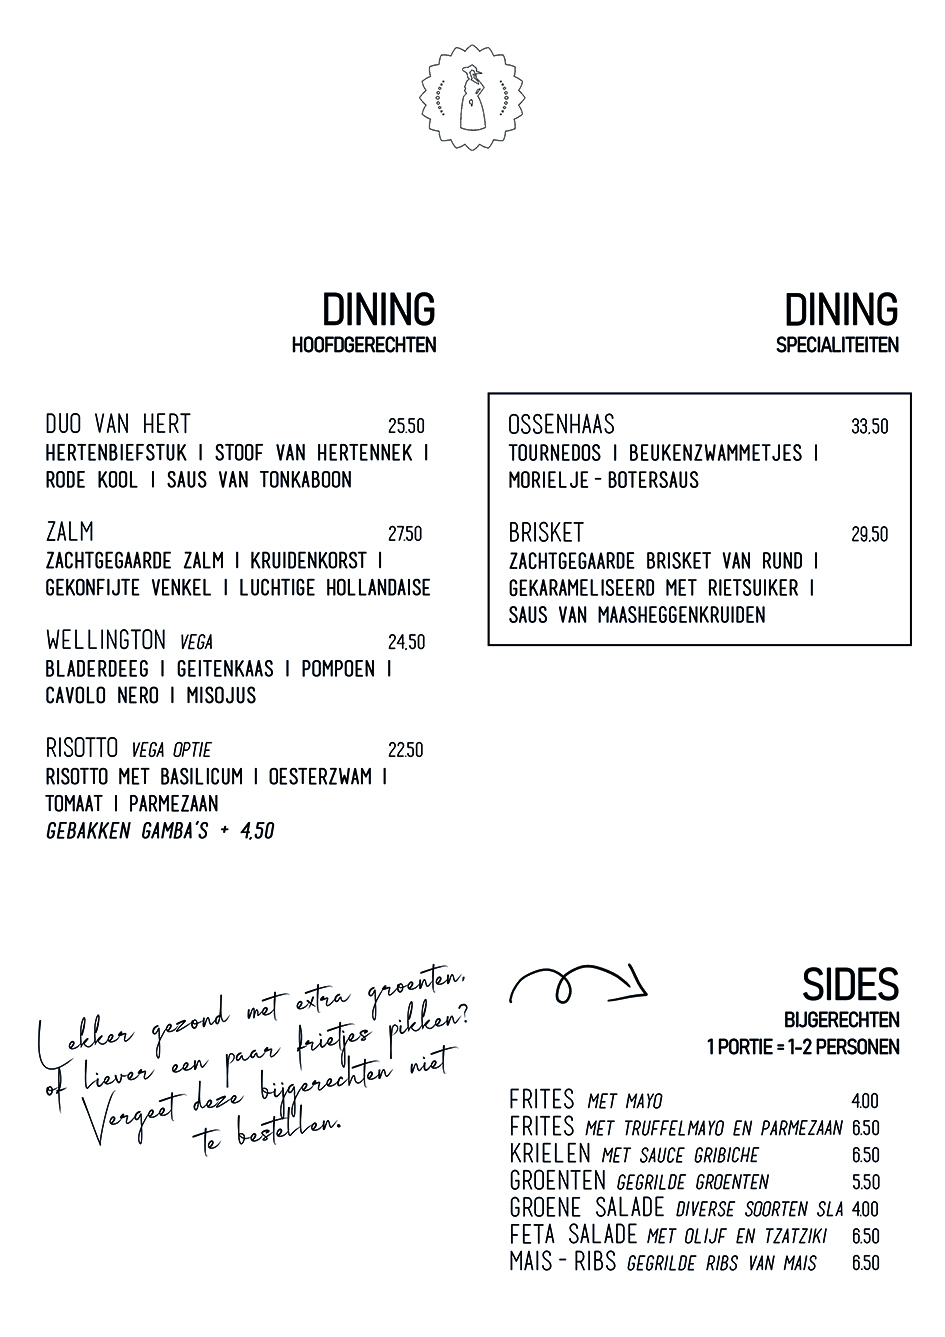 DINING
HOOFDGERECHTEN
DUO VAN HERT 25.50
HERTENBIEFSTUK | STOOF VAN HERTENNEK |
RODE KOOL | SAUS VAN TONKABOON
ZALM 27.50
ZACHTGEGAARDE ZALM | KRUIDENKORST |
GEKONFIJTE VENKEL | LUCHTIGE HOLLANDAISE
WELLINGTON VEGA 24.50
BLADERDEEG | GEITENKAAS | POMPOEN |
CAVOLO NERO | MISOJUS
RISOTTO VEGA OPTIE 22.50
RISOTTO MET BASILICUM | OESTERZWAM |
TOMAAT | PARMEZAAN
GEBAKKEN GAMBA'S + 4,50
DINING
SPECIALITEITEN
OSSENHAAS 33.50
TOURNEDOS | BEUKENZWAMMETJES |
MORIELJE - BOTERSAUS
BRISKET 29.50
ZACHTGEGAARDE BRISKET VAN RUND |
GEKARAMELISEERD MET RIETSUIKER |
SAUS VAN MAASHEGGENKRUIDEN
Lekker gezond met extra groenten,
of liever een paar frietjes pikken?
Vergeet deze bijgerechten niet
te bestellen.
SIDES
BIJGERECHTEN
1 PORTIE = 1-2 PERSONEN
FRITES MET MAYO 4.00
FRITES MET TRUFFELMAYO EN PARMEZAAN 6.50
KRIELEN MET SAUCE GRIBICHE 6.50
GROENTEN GEGRILDE GROENTEN 5.50
GROENE SALADE DIVERSE SOORTEN SLA 4.00
FETA SALADE MET OLIJF EN TZATZIKI 6.50
MAIS - RIBS GEGRILDE RIBS VAN MAIS 6.50